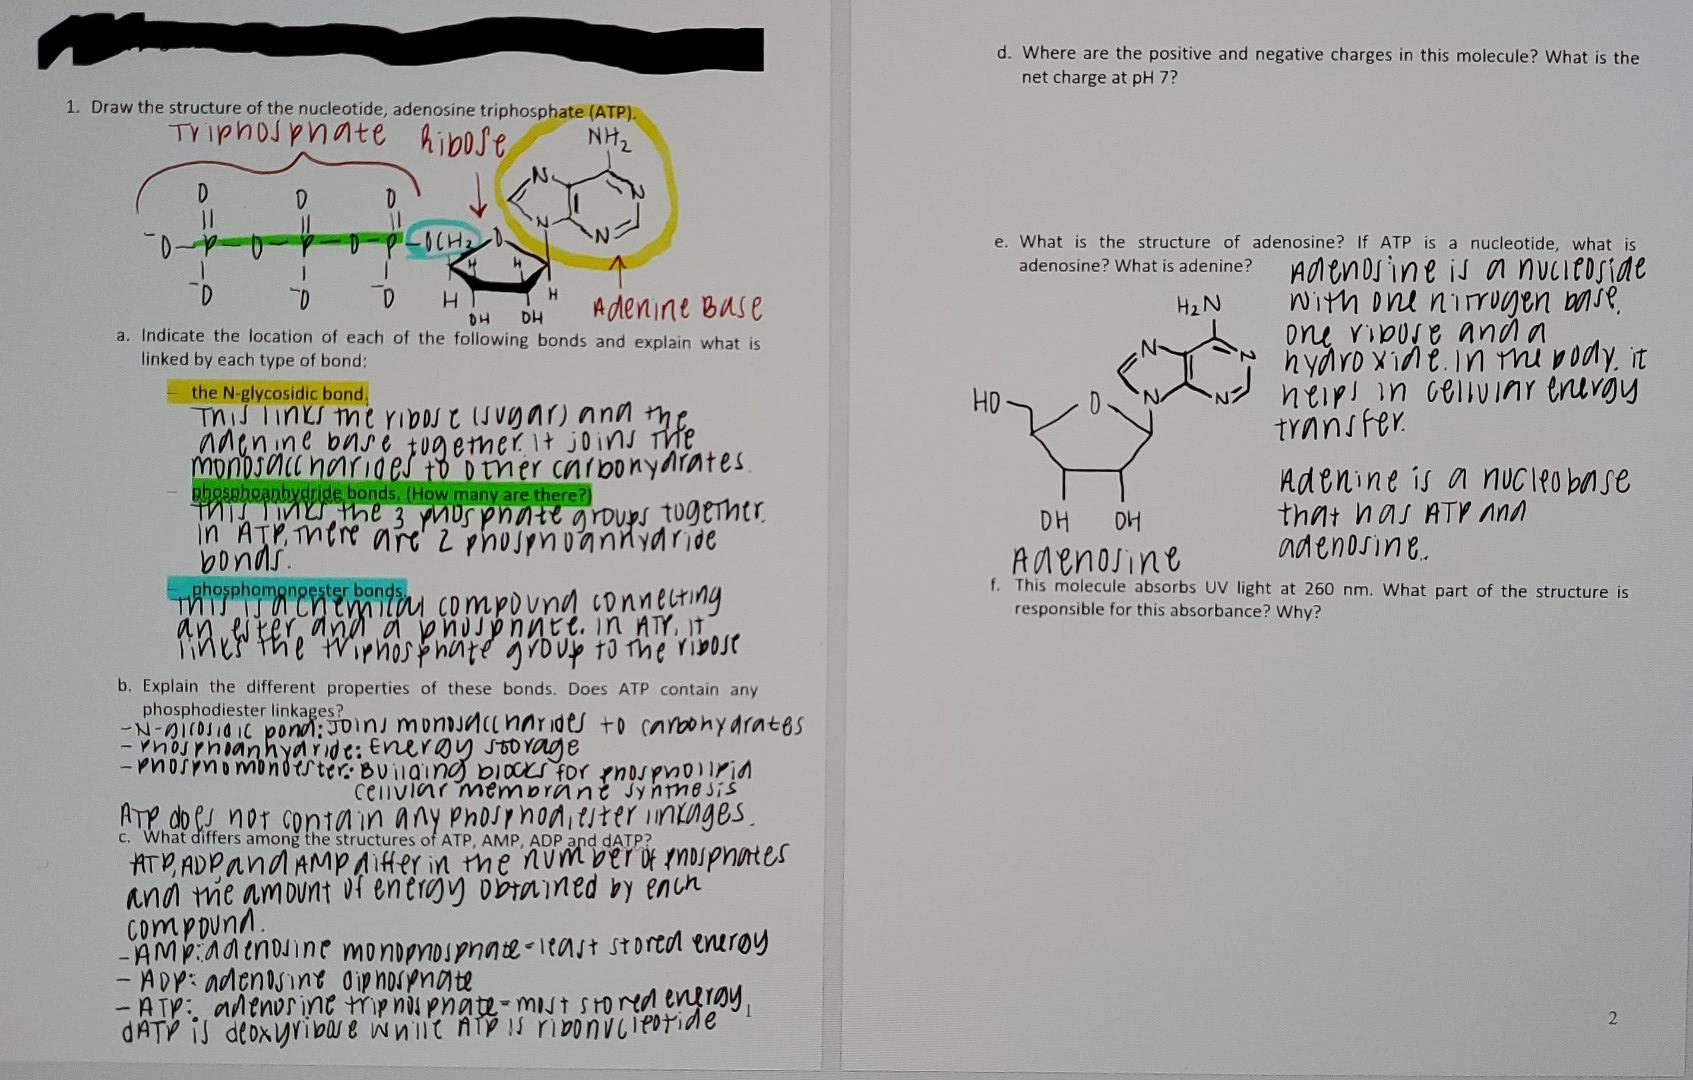 1. Draw the structure of the nucleotide, adenosine triphosphate (ATP).
Triphosphate Ribose
NH2
O O O
N N
⁻O-P-O-P-O-P-OCH2 O N N
H H
⁻O ⁻O ⁻O H H
OH OH Adenine Base
a. Indicate the location of each of the following bonds and explain what is
linked by each type of bond:
- the N-glycosidic bond.
This links the ribose (sugar) and the
adenine base together. It joins the
monosaccharides to other carbohydrates.
- phosphoanhydride bonds. (How many are there?)
This links the 3 phosphate groups together.
In ATP, there are 2 phosphoanhydride
bonds.
- phosphomonoester bonds.
This is a chemical compound connecting
an ester and a phosphate. In ATP, it
links the triphosphate group to the ribose
b. Explain the different properties of these bonds. Does ATP contain any
phosphodiester linkages?
-N-glcosidic bond: Joins monosaccharides to carbohydrates
-Phosphoanhydride: Energy storage
-Phosphomonoester: Building blocks for phospholipid
cellular membrane synthesis
ATP does not contain any phosphodiester linkages.
c. What differs among the structures of ATP, AMP, ADP and dATP?
ATP, ADP, and AMP differ in the number of phosphates
and the amount of energy obtained by each
compound.
-AMP: adenosine monophosphate - least stored energy
- ADP: adenosine diphosphate
- ATP: adenosine triphosphate - most stored energy
dATP is deoxyribose while ATP is ribonucleotide
d. Where are the positive and negative charges in this molecule? What is the
net charge at pH 7?
e. What is the structure of adenosine? If ATP is a nucleotide, what is
adenosine? What is adenine?
Adenosine is a nucleoside
with one nitrogen base,
one ribose and a
hydroxide. In the body, it
helps in cellular energy
transfer.
H2N
N N
HO O N N
OH OH
Adenosine
Adenine is a nucleobase
that has ATP and
adenosine.
f. This molecule absorbs UV light at 260 nm. What part of the structure is
responsible for this absorbance? Why?
2